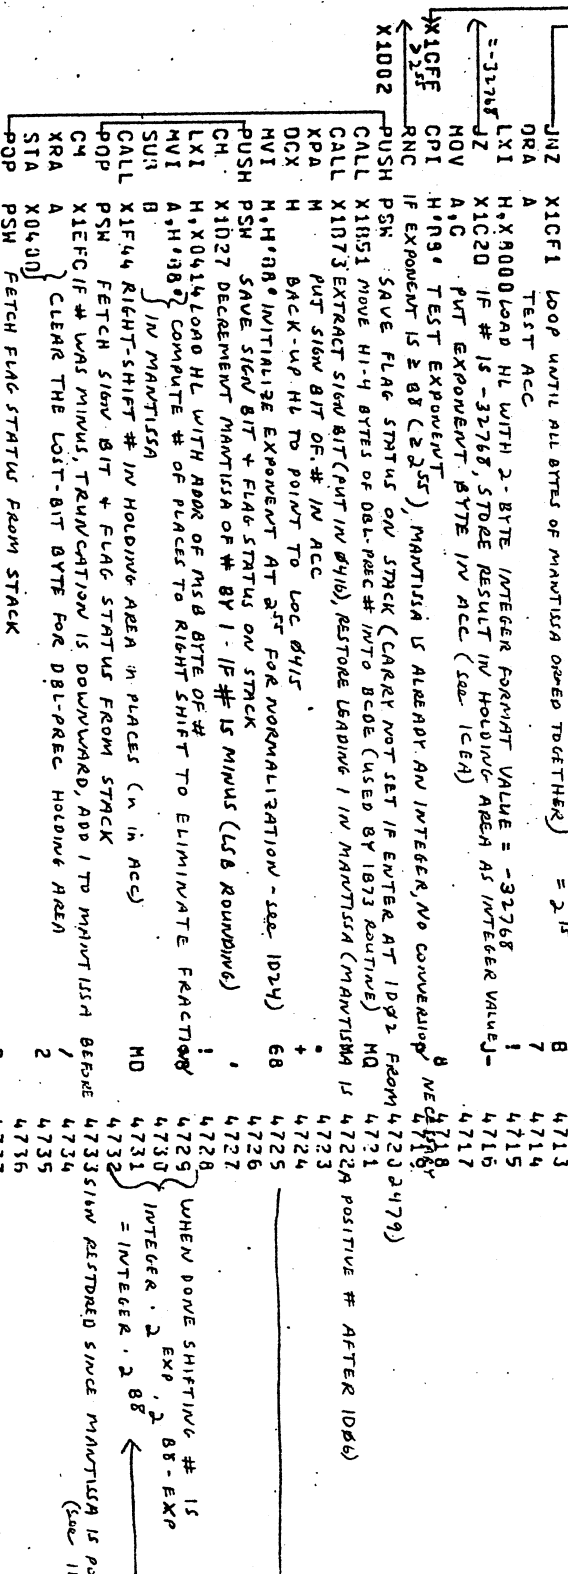 JNZ X1CF1 LOOP UNTIL ALL BYTES OF MANTISSA ORED TOGETHER) = 2^15 B 4713
ORA A TEST ACC 7 4714
LXI H,X8000 LOAD HL WITH 2-BYTE INTEGER FORMAT VALUE = -32768 ! 4715
=-32768 JZ X1C20 IF # IS -32768, STORE RESULT IN HOLDING AREA AS INTEGER VALUE - 4716
MOV A,C PUT EXPONENT BYTE IN ACC (see 1CEA) 4717
X1CFE CPI H'B8' TEST EXPONENT 8 4718
≥2^55 RNC IF EXPONENT IS ≥ B8 (≥2^55), MANTISSA IS ALREADY AN INTEGER, NO CONVERSION NECESSARY 4719
X1D02 PUSH PSW SAVE FLAG STATUS ON STACK (CARRY NOT SET IF ENTER AT 1DØ2 FROM 2479) 4720
CALL X1B51 MOVE HI-4 BYTES OF DBL-PREC # INTO BCDE (USED BY 1B73 ROUTINE) MQ 4721
CALL X1B73 EXTRACT SIGN BIT (PUT IN Ø416), RESTORE LEADING 1 IN MANTISSA (MANTISSA IS A POSITIVE # AFTER 1DØ6) 4722
XRA M PUT SIGN BIT OF # IN ACC . 4723
DCX H BACK-UP HL TO POINT TO LOC Ø415 + 4724
MVI M,H'B8' INITIALIZE EXPONENT AT 2^55 FOR NORMALIZATION - see 1D24) 68 4725
PUSH PSW SAVE SIGN BIT + FLAG STATUS ON STACK 4726
CM X1D27 DECREMENT MANTISSA OF # BY 1 - IF # IS MINUS (LSB ROUNDING) ' 4727
LXI H,X0414 LOAD HL WITH ADDR OF MSB BYTE OF # ! 4728
MVI A,H'B8' COMPUTE # OF PLACES TO RIGHT SHIFT TO ELIMINATE FRACTION 4729 WHEN DONE SHIFTING # IS
SUB B IN MANTISSA 4730 INTEGER · 2^EXP · 2^B8-EXP
CALL X1F44 RIGHT-SHIFT # IN HOLDING AREA n PLACES (n in ACC) MD 4731 = INTEGER · 2^B8
POP PSW FETCH SIGN BIT + FLAG STATUS FROM STACK 4732
CM X1EFC IF # WAS MINUS, TRUNCATION IS DOWNWARD, ADD 1 TO MANTISSA BEFORE 4733 SIGN RESTORED SINCE MANTISSA IS
XRA A CLEAR THE LOST-BIT BYTE FOR DBL-PREC HOLDING AREA / 4734 (see
STA X040D 2 4735
POP PSW FETCH FLAG STATUS FROM STACK 4736